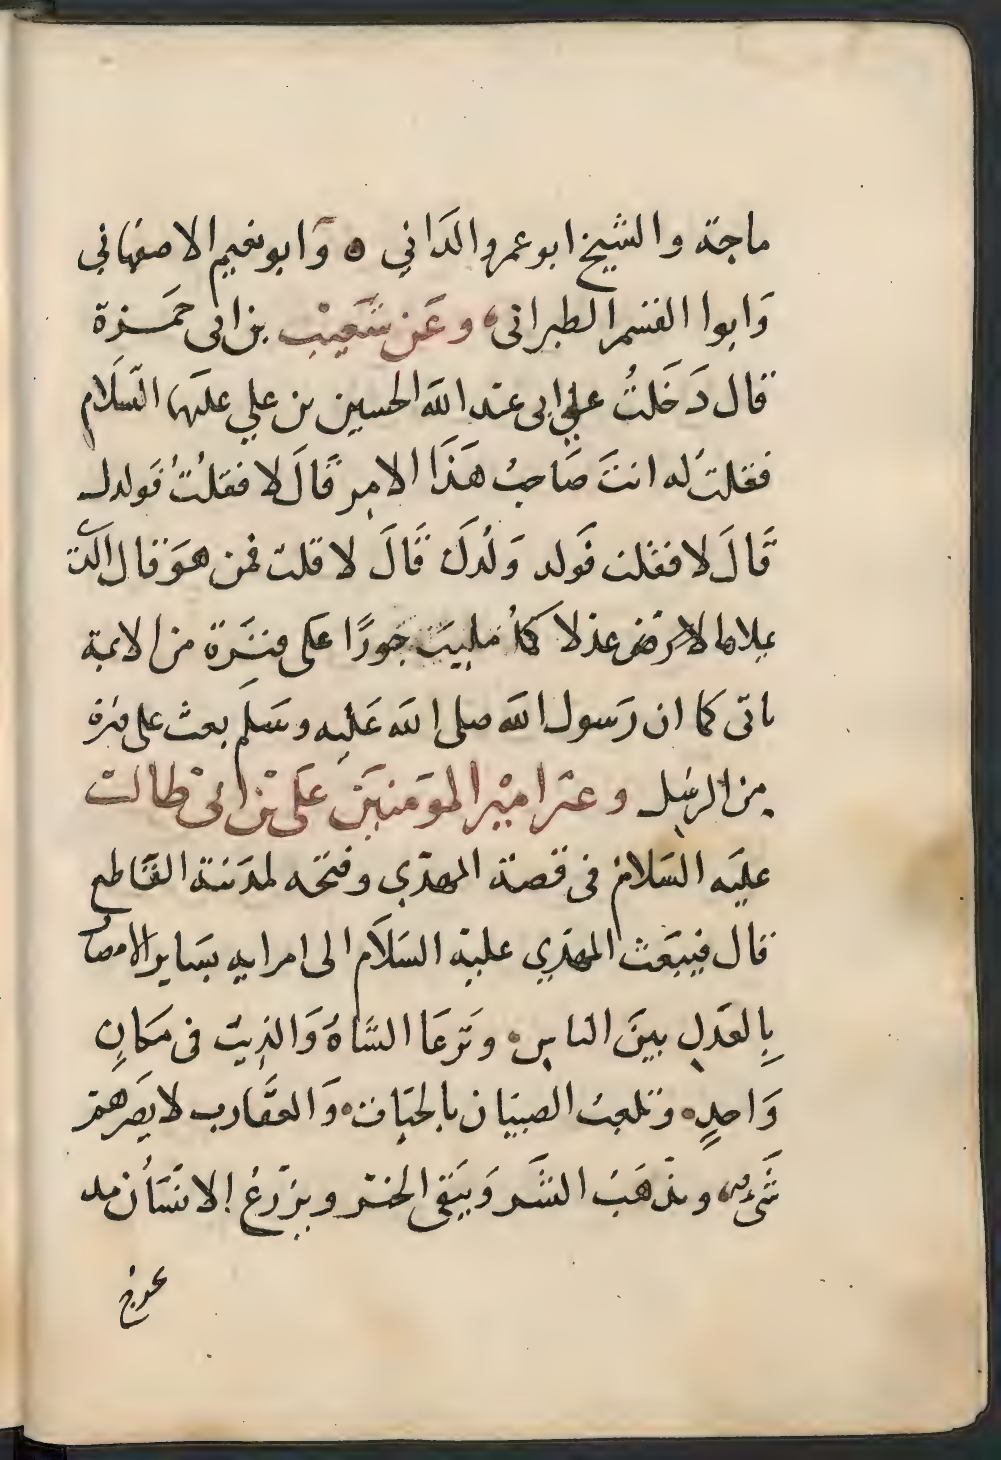 ماجة والشيخ ابو عمرو الدَاني ه وَابو نعيم الاصفهاني
وَابوا القسم الطبراني ه وعَن شُعَيْب بن ابى حَمَـزة
قال دَخَلتُ على ابى عبد الله الحسين بن علي علَيهما السَّلام
فقلتُ له انتَ صَاحبُ هَذَا الامرِ قَالَ لا فقلتُ فَولدك
قَالَ لا فقلت فَولد وَلَدكَ قَالَ لا قلت فمن هوَ قال الّذى
يملاها الارض عدلا كمَا مليَت جَورًا على فتَرَة من الايمة
ياتى كما ان رَسول الله صلى الله عَليه وسَلم بعث على فترة
من الرسُل وعن امير المومَنين عَلى بن ابى طالب
عليَه السَلام فى قصة المهدي وفتحه لمدَينة القَاطع
قال فيبعَث المهدِي عليه السَلاَم الى امرايه بسَاير الامصار
بِالعَدلِ بينَ الناسِ ه وتَرعَا الشَاةُ وَالذيبُ فى مَكانٍ
وَاحدٍ ه وتلعبُ الصبيَان بالحيَات ه وَالعقَارب لا يضَرهم
شَىء ه ويذهَبُ الشَر وَيبَقى الخير ويزرَعُ الانسَأن مد
يخرج